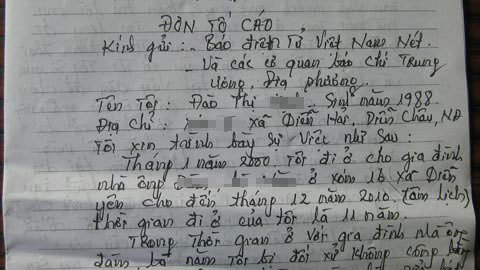 ĐƠN TỐ CÁO
Kính gửi: - Báo điện Tử Việt Nam Nét.
- Và các cơ quan báo chí Trung
Ương, Địa phương.
Tên Tôi: Đào Thị Sinh năm 1988.
Địa chỉ: xã Diễn Hải, Diễn Châu, NA
Tôi xin trình bày sự việc như sau:
Tháng 1 năm 2000, tôi đi ở cho gia đình
nhà ông ở xóm 16 xã Diễn
yên cho đến tháng 12 năm 2010. (âm lịch)
thời gian đi ở của tôi là 11 năm.
Trong thời gian ở với gia đình nhà ông
năm tôi bị đối xử không công bằng